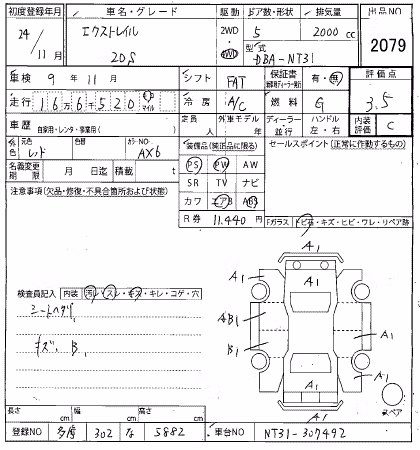 初度登録年月 車名・グレード 駆動 ドア数・形状 排気量 出品NO
24/11月 エクストレイル 20S 2WD 4WD 5 2000cc 2079
型式 DBA-NT31
車検 9年11月 シフト FAT 保証書 有・無 評価点
走行 16万6千520 km マイル 冷房 A/C 燃料 G 3.5
車歴 自家用・レンタ・事業用( ) 定員 人 外車モデル 年 ディーラー 並行 ハンドル 左・右 内装評価 C
外色 元色 レッド 色替 カラーNO AX6 装備品(純正品に限る) セールスポイント(正常に作動するもの)
PS PW AW
名義変更期限 月 日迄 積載 t SR TV ナビ
注意事項(欠品・修復・不具合箇所および状態) カワ エアB ABS
R券 11,440円 Fガラス トビ石・キズ・ヒビ・ワレ・リペア跡
A1
A1 A1 A1
検査員記入 内装 汚レ・スレ・キズ・キレ・コゲ・穴
シートヘタリ AB1
キズ、B1 B1 A1
A1 A1
A1 スペア
長さ cm 幅 cm 高さ cm
登録NO 多摩 302 な 5882 車台NO NT31-307492